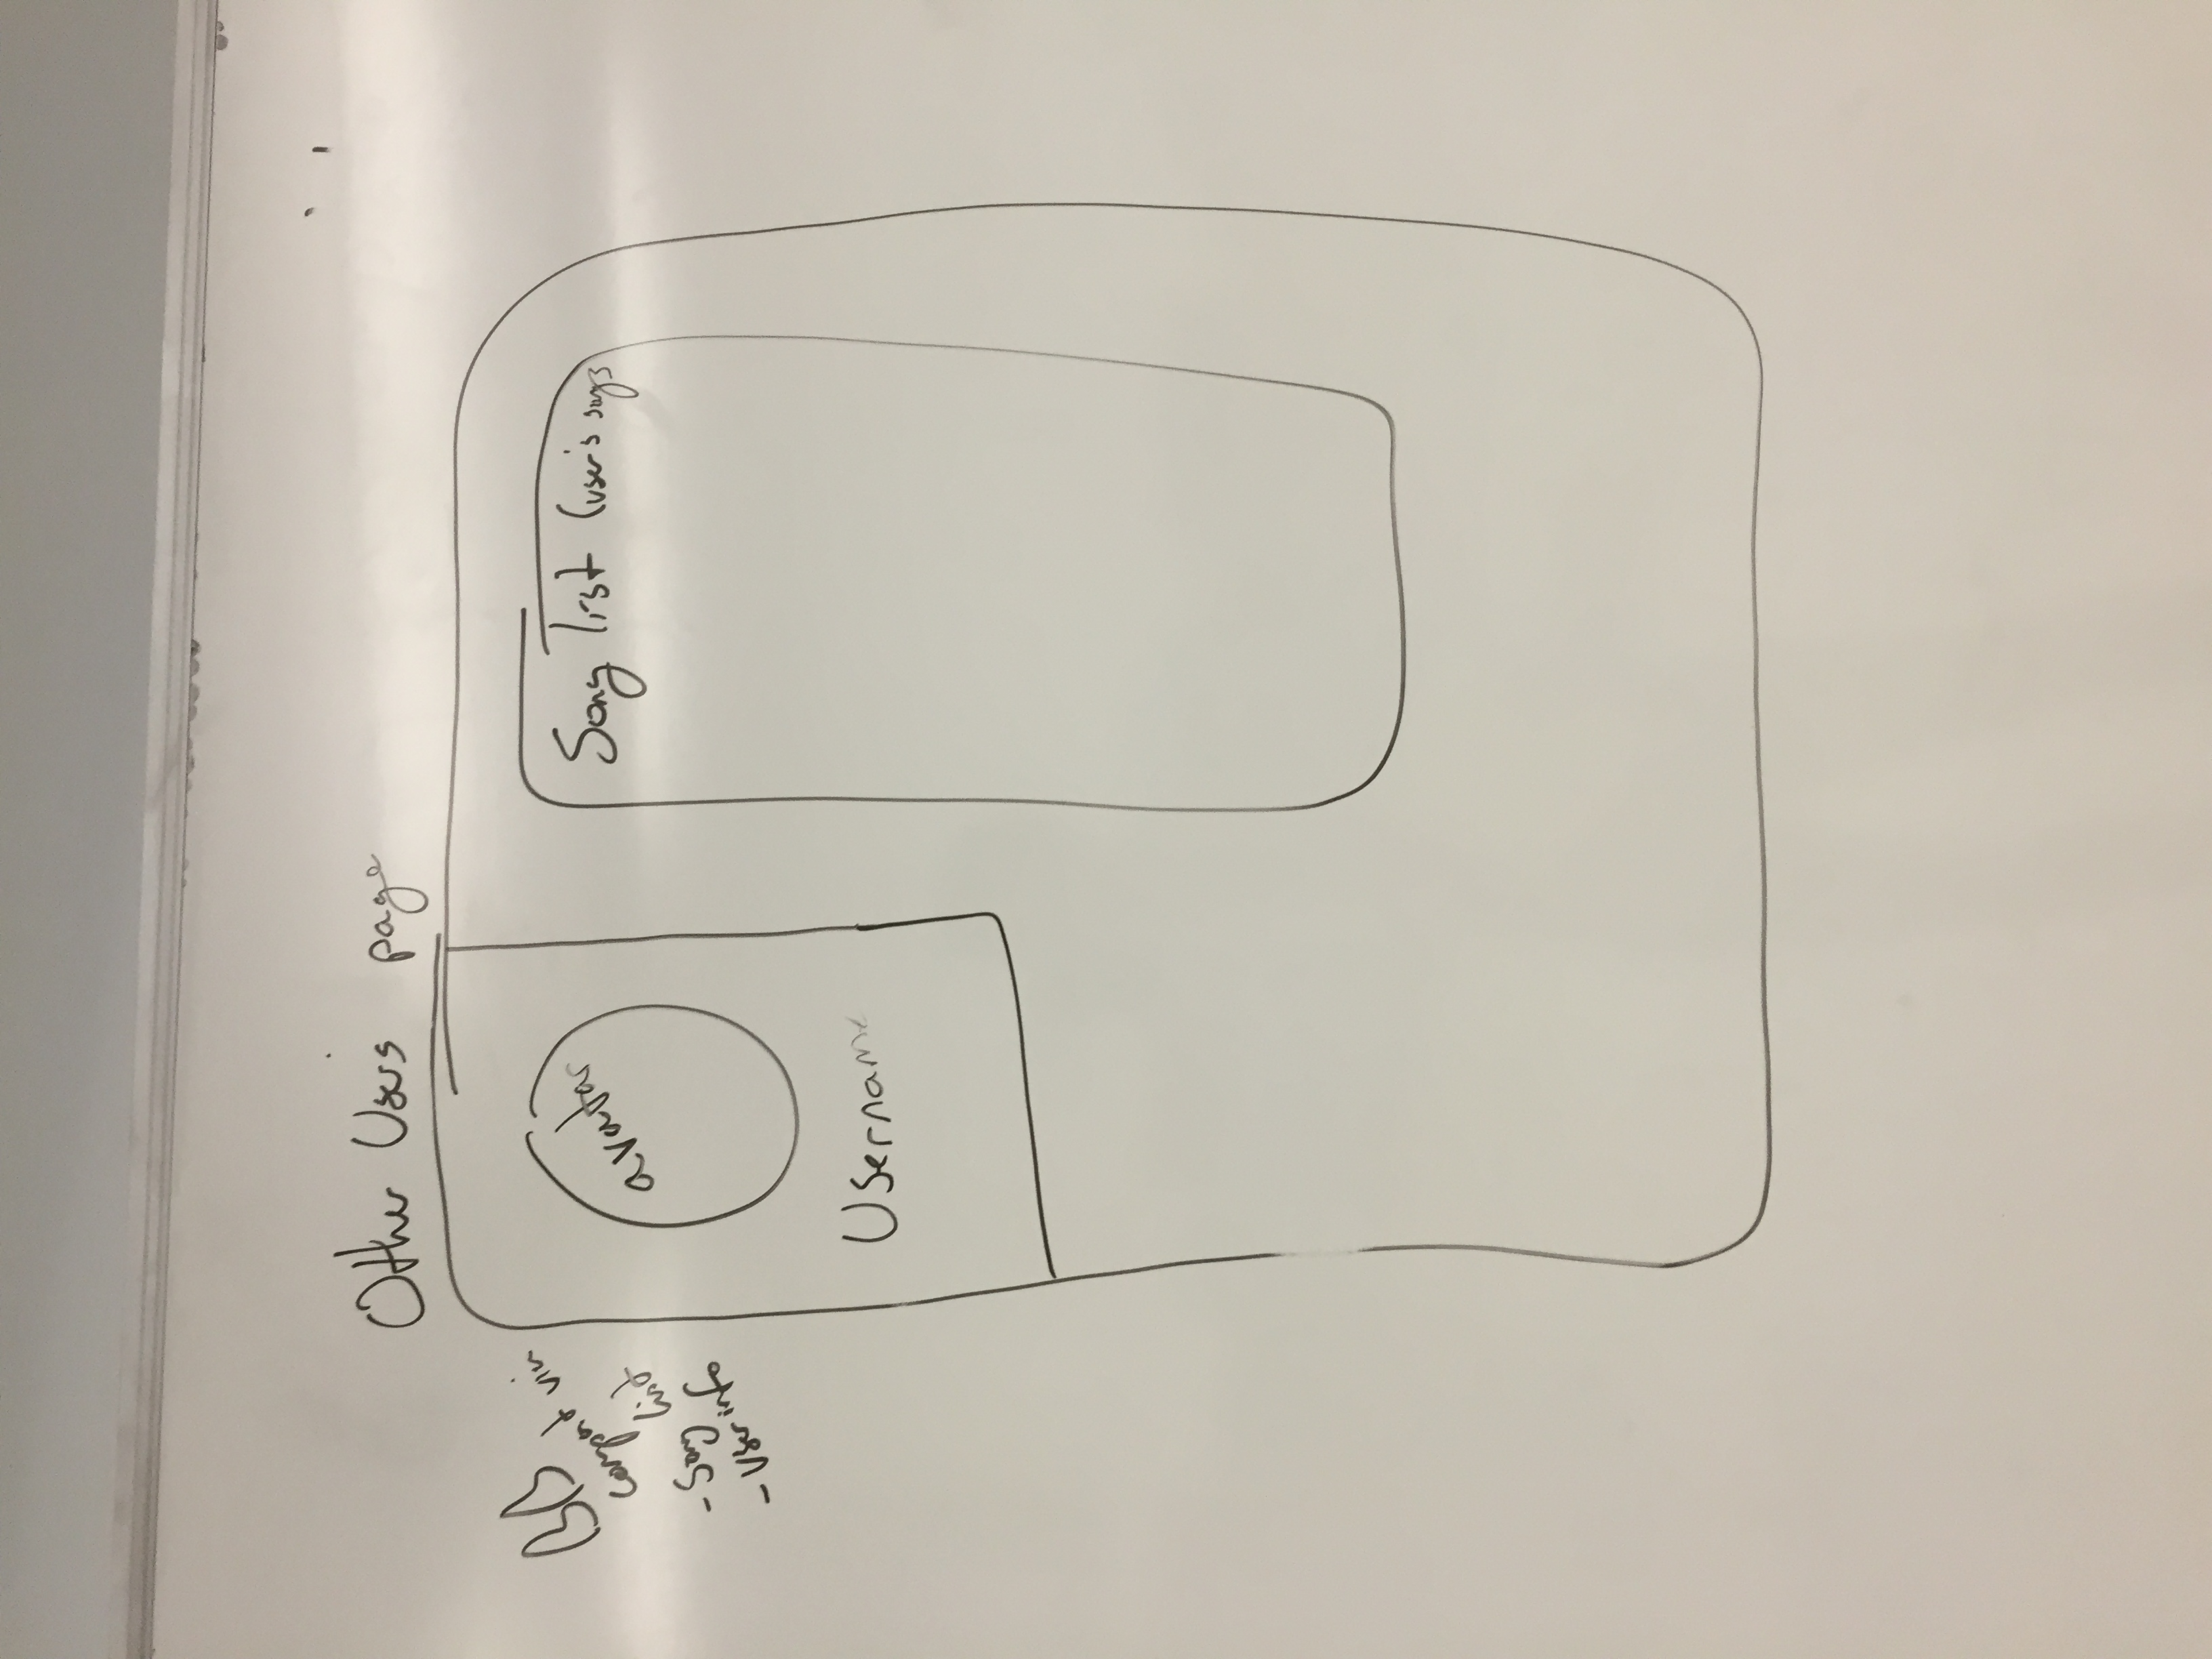 Other Users page
BB
via
- Song list
- User info
avatar
Username
Song list (user's songs